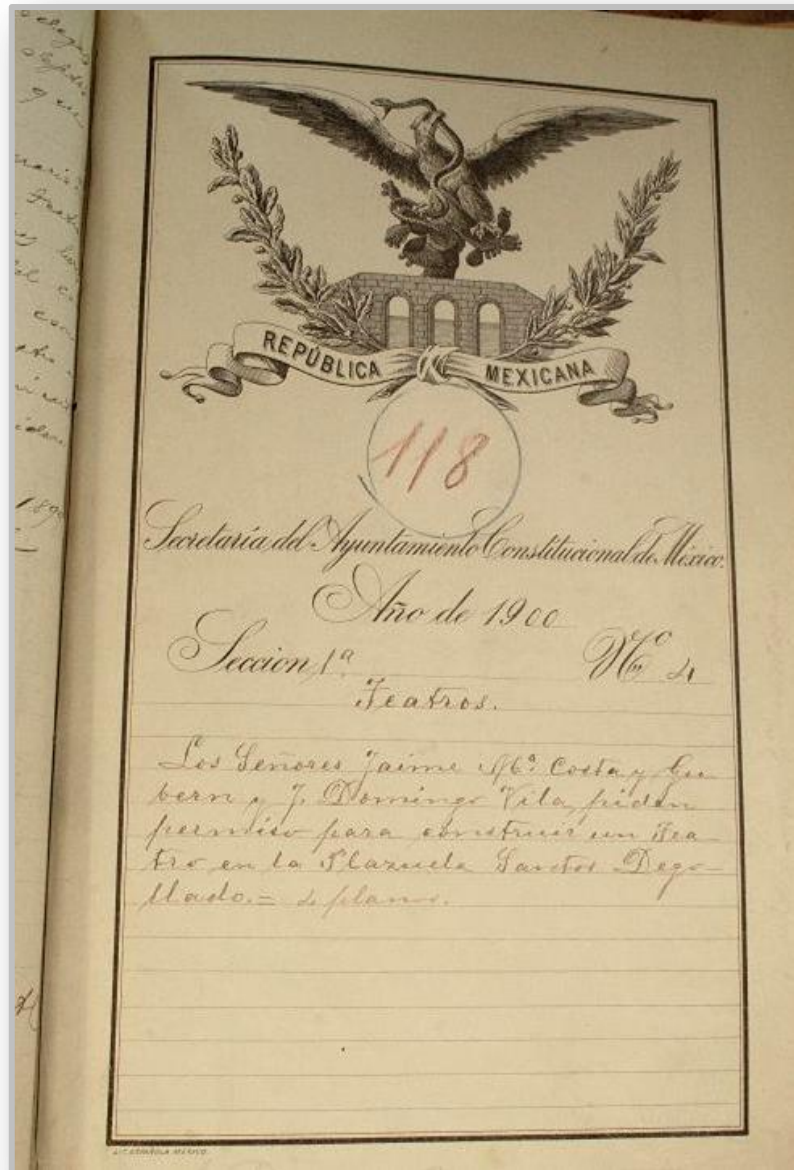 REPÚBLICA MEXICANA
118
Secretaría del Ayuntamiento Constitucional de México.
Año de 1900
Seccion 1ª Nº 4
Teatros.
Los Señores Jaime Mª Costa y Gu
bern y J. Domingo Vila, piden
permiso para construir un Tea
tro en la Plazuela Santos Dego-
llado.=
189